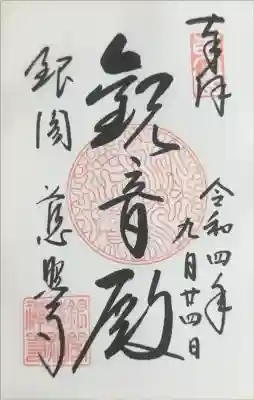 奉拝
令和四年
九月廿四日
観音殿
銀閣
慈照寺